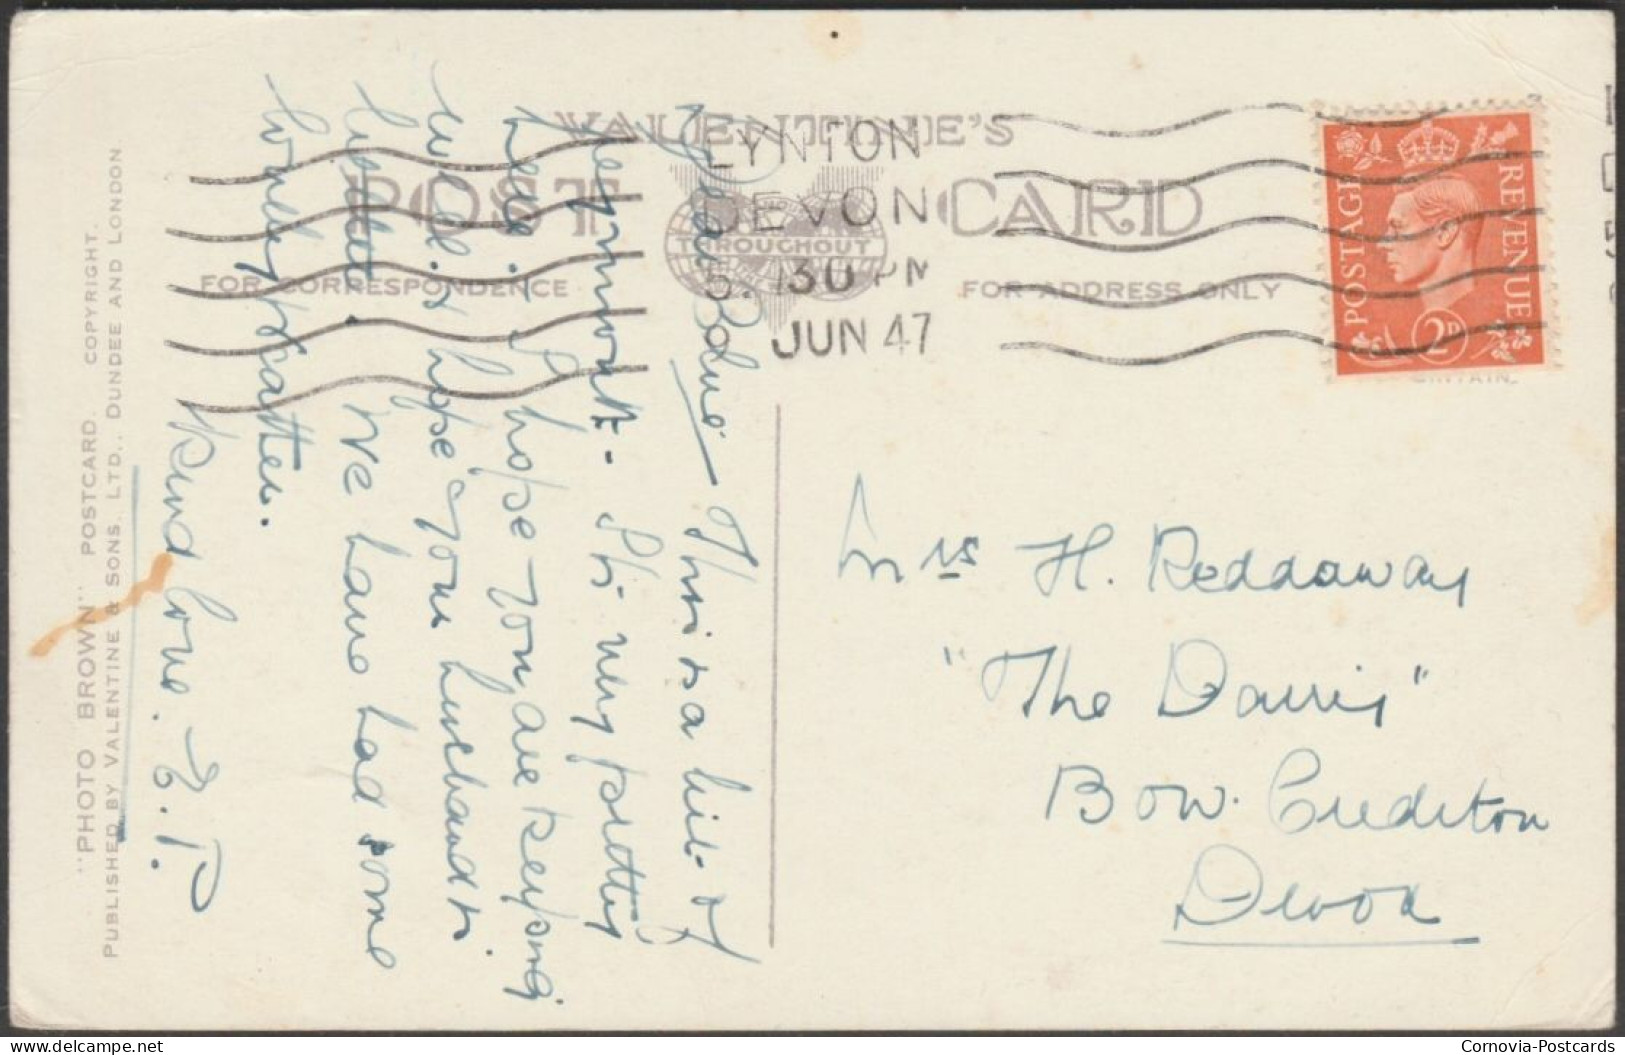 VALENTINE'S
POST CARD
THROUGHOUT
FOR CORRESPONDENCE
FOR ADDRESS ONLY
LYNTON
DEVON
5. 30 PM
9 JUN 47
POSTAGE
REVENUE
2D
My Dear This is a bit of
Heynworth - It's very pretty
here. I hope you are keeping
well. & hope your husband is
better We have had some
lovely weather.
Kind love. E. P.
Mrs H. Reddaway
"The Dairy"
Bow. Crediton
Devon
"PHOTO BROWN" POSTCARD. COPYRIGHT.
PUBLISHED BY VALENTINE & SONS, LTD., DUNDEE AND LONDON
delcampe.net
Cornovia-Postcards